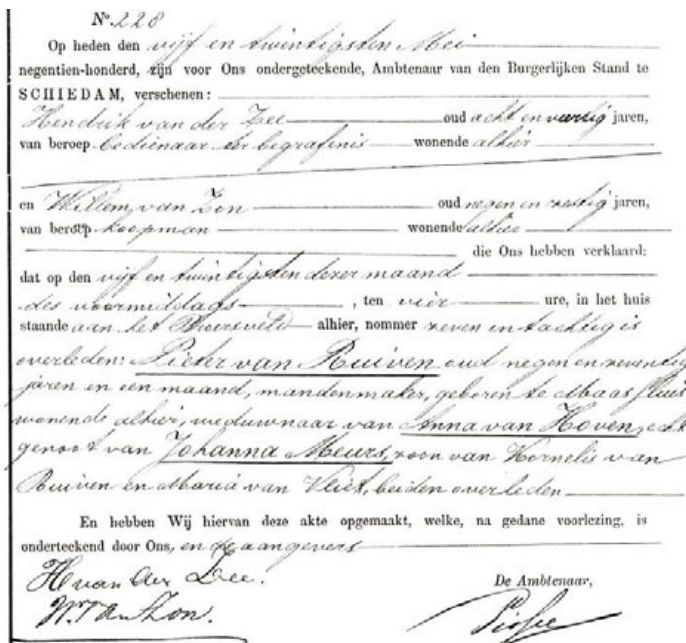 No. 228
Op heden den vijf en twintigsten Mei
negentien-honderd, zijn voor Ons ondergeteekende, Ambtenaar van den Burgerlijken Stand te
SCHIEDAM, verschenen:
Hendrik van der Zee oud acht en veertig jaren,
van beroep bedienaar ter begrafenis wonende alhier
en Willem van Zon oud negen en zestig jaren,
van beroep koopman wonende alhier
die Ons hebben verklaard:
dat op den vijf en twintigsten dezer maand
des voormiddags, ten vier ure, in het huis
staande aan het Broersveld alhier, nommer zeven en tachtig is
overleden: Pieter van Ruiven, oud negen en zeventig
jaren en een maand, mandenmaker, geboren te Maassluis
wonende alhier, weduwnaar van Anna van Hoven, echt
genoot van Johanna Meurs, zoon van Kornelis van
Ruiven en Maria van Vliet, beiden overleden
En hebben Wij hiervan deze akte opgemaakt, welke, na gedane voorlezing, is
onderteekend door Ons, en de aangevers
H van der Zee. De Ambtenaar,
W. van Zon.